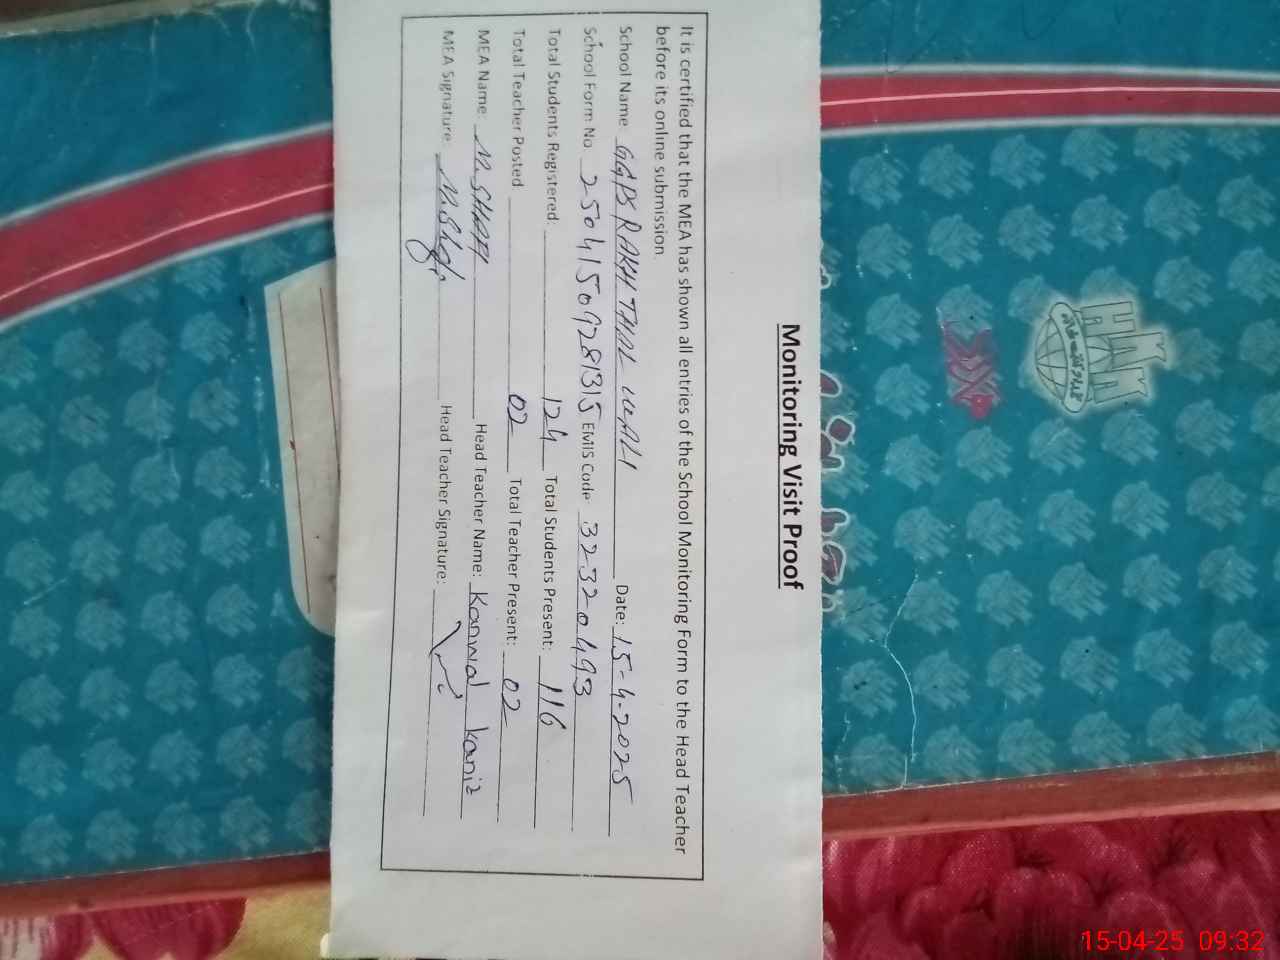 Monitoring Visit Proof
It is certified that the MEA has shown all entries of the School Monitoring Form to the Head Teacher
before its online submission.
School Name GGPS RAKH THAL WALI Date: 15-4-2025
School Form No. 25041509281315 EMIS Code 32320493
Total Students Registered: 124 Total Students Present: 116
Total Teacher Posted 02 Total Teacher Present: 02
MEA Name: M.SHAFI Head Teacher Name: Kanwal kaniz
MEA Signature: Head Teacher Signature:
15-04-25 09:32